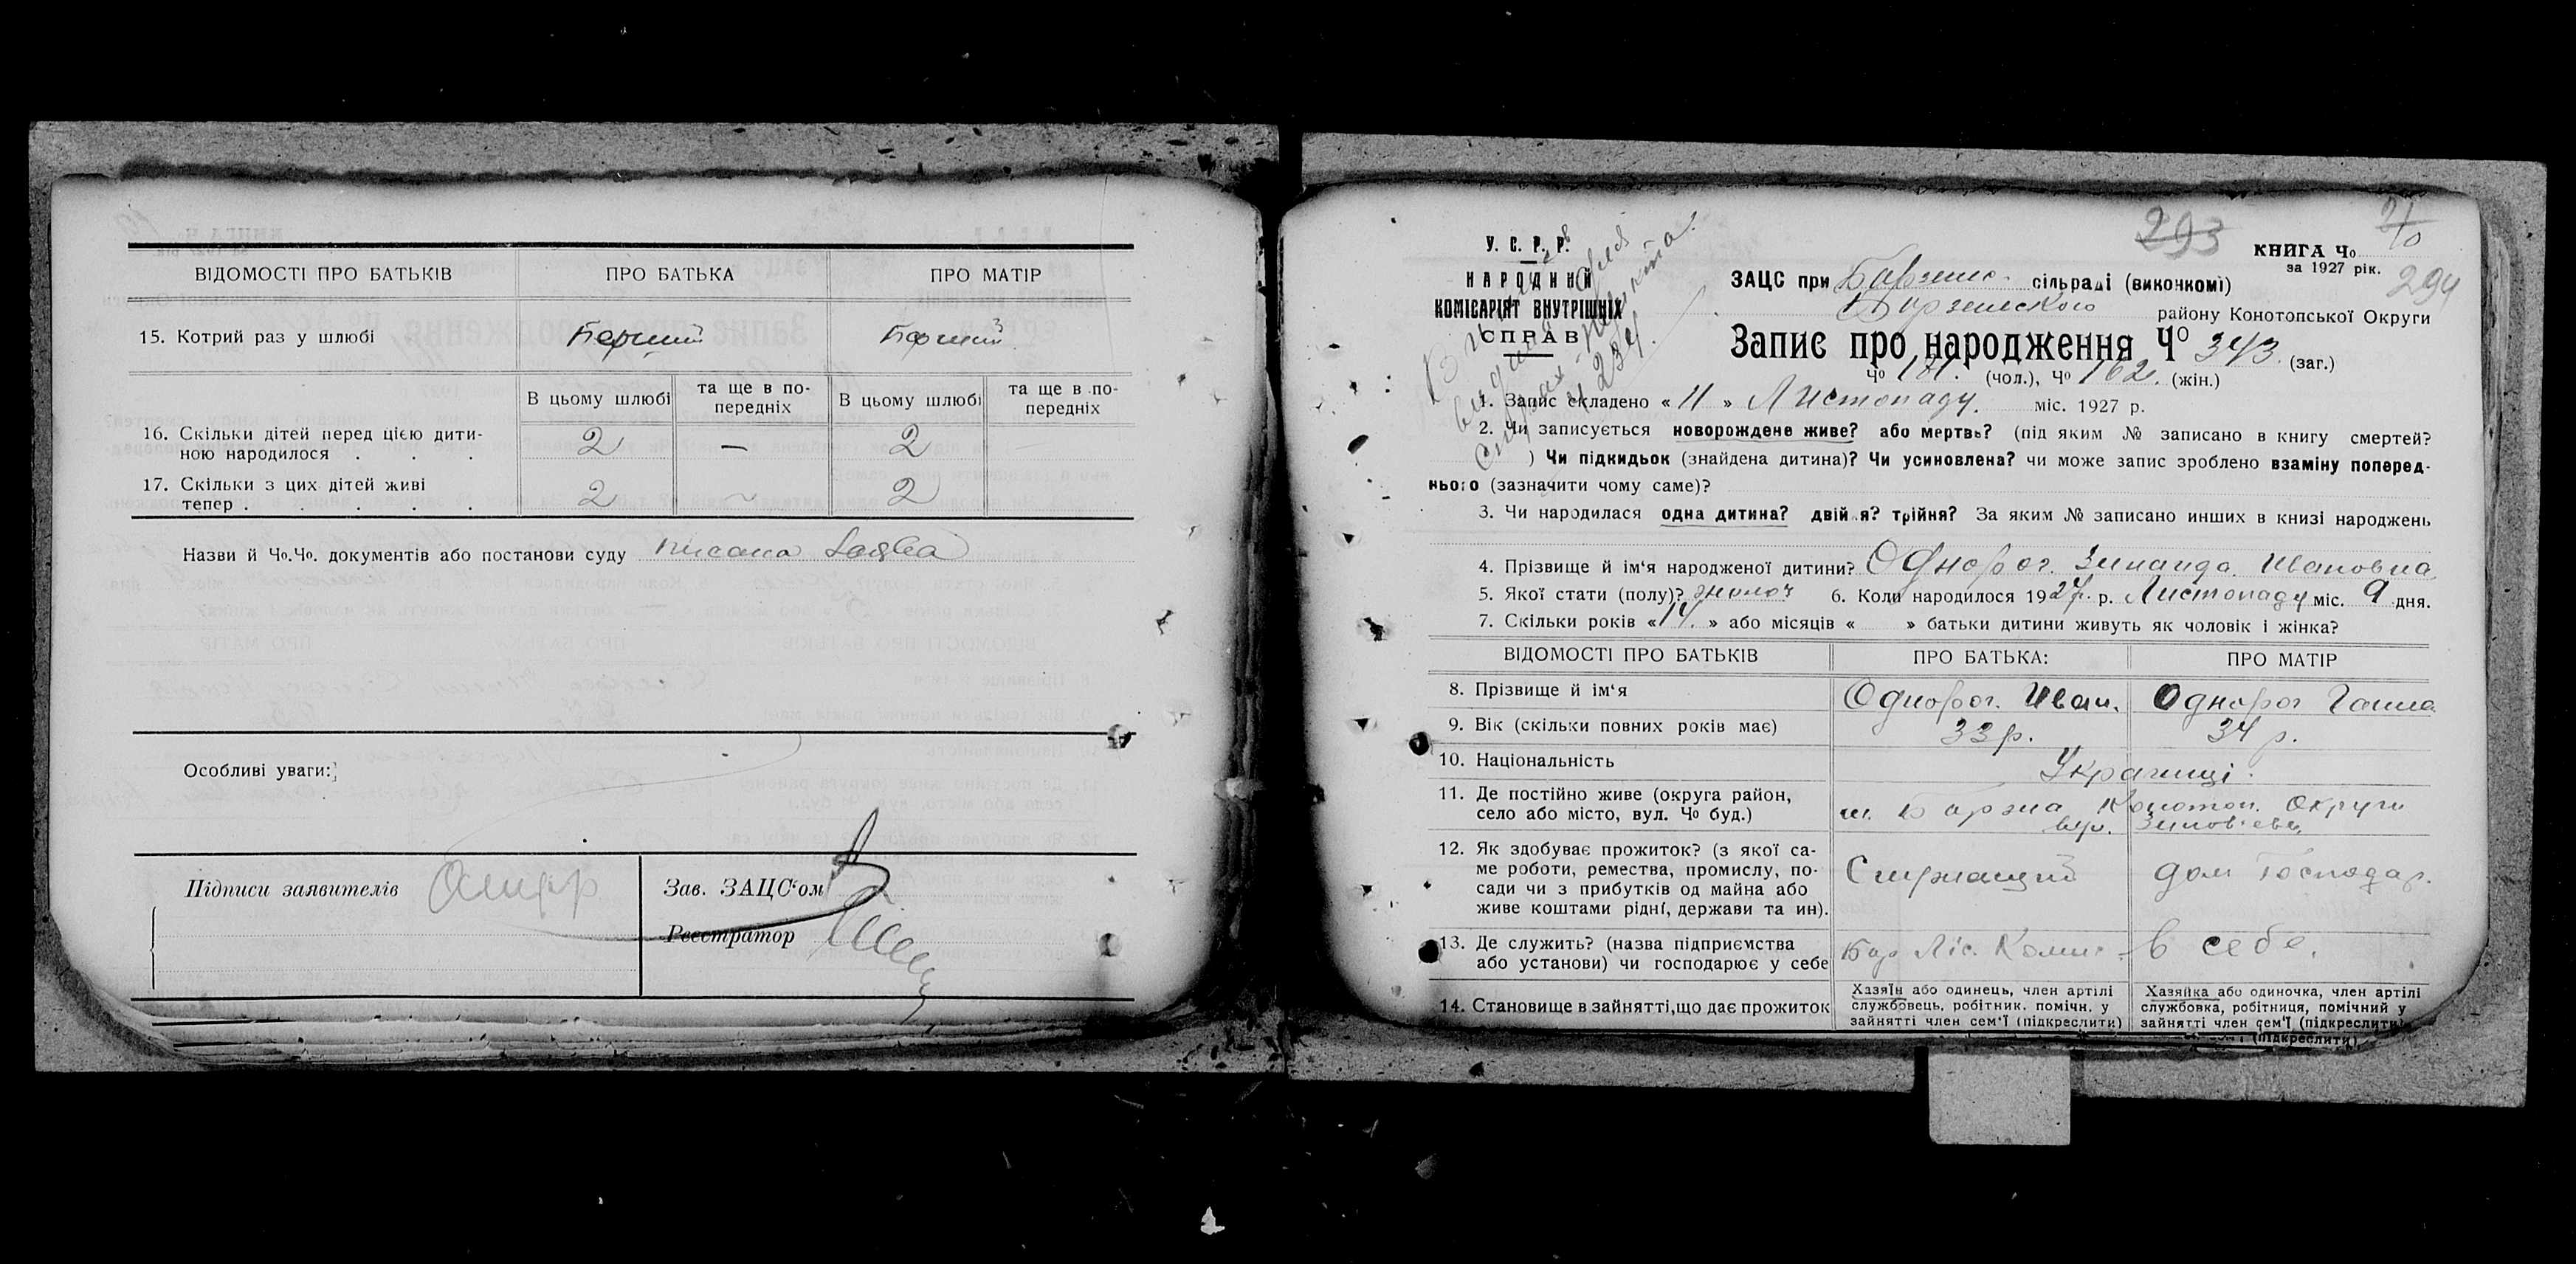 ВІДОМОСТІ ПРО БАТЬКІВ ПРО БАТЬКА ПРО МАТІР
15. Котрий раз у шлюбі Перший Перший
В цьому шлюбі та ще в по-передніх В цьому шлюбі та ще в по-передніх
16. Скільки дітей перед цією дити-
ною народилося . . . 2 — 2
17. Скільки з цих дітей живі
тепер . . . . . 2 ~ 2
Назви й Чо.Чо. документів або постанови суду писана заява
Особливі уваги:
Підписи заявителів
Зав. ЗАЦС'ом
Реєстратор
293
294
У. С. Р. Р.
НАРОДНИЙ
КОМІСАРІЯТ ВНУТРІШНІХ
СПРАВ
КНИГА Чо
за 1927 рік.
ЗАЦС при Борзенс. сільраді (виконкомі)
Борзенского району Конотопської Округи
Запис про народження Чо 343. (заг.)
Чо 181. (чол.), Чо 162. (жін.)
1. Запис складено « 11 » Листопаду. міс. 1927 р.
2. Чи записується новорождене живе? або мертве? (під яким № записано в книгу смертей?
) Чи підкидьок (знайдена дитина)? Чи усиновлена? чи може запис зроблено взаміну поперед-
нього (зазначити чому саме)?
3. Чи народилася одна дитина? двійня? трійня? За яким № записано инших в книзі народжень
4. Прізвище й ім'я народженої дитини? Однорог. Зинаида Ивановна
5. Якої стати (полу)? жіноч 6. Коли народилося 1927р. р. Листопаду міс. 9 дня.
7. Скільки років « 14. » або місяців « » батьки дитини живуть як чоловік і жінка?
ВІДОМОСТІ ПРО БАТЬКІВ ПРО БАТЬКА: ПРО МАТІР
8. Прізвище й ім'я Однорог. Иван. Однорог Ганна
9. Вік (скільки повних років має) 33 р. 34 р.
10. Національність Українці.
11. Де постійно живе (округа район,
село або місто, вул. Чо буд.) м. Борзна Конотоп. Округи
вул. Зинов'ева
12. Як здобуває прожиток? (з якої са-
ме роботи, ремества, промислу, по-
сади чи з прибутків од майна або
живе коштами рідні, держави та ин). Служащий дом господар.
13. Де служить? (назва підприємства
або установи) чи господарює у себе Бор Ліс. в себе.
14. Становище в зайнятті, що дає прожиток
Хазяїн або одинець, член артілі
службовець, робітник, помічн. у
зайнятті член сем'ї (підкреслити)
Хазяйка або одиночка, член артілі
службовка, робітниця, помічний у
зайнятті член сем'ї (підкреслити)
(підкреслити)